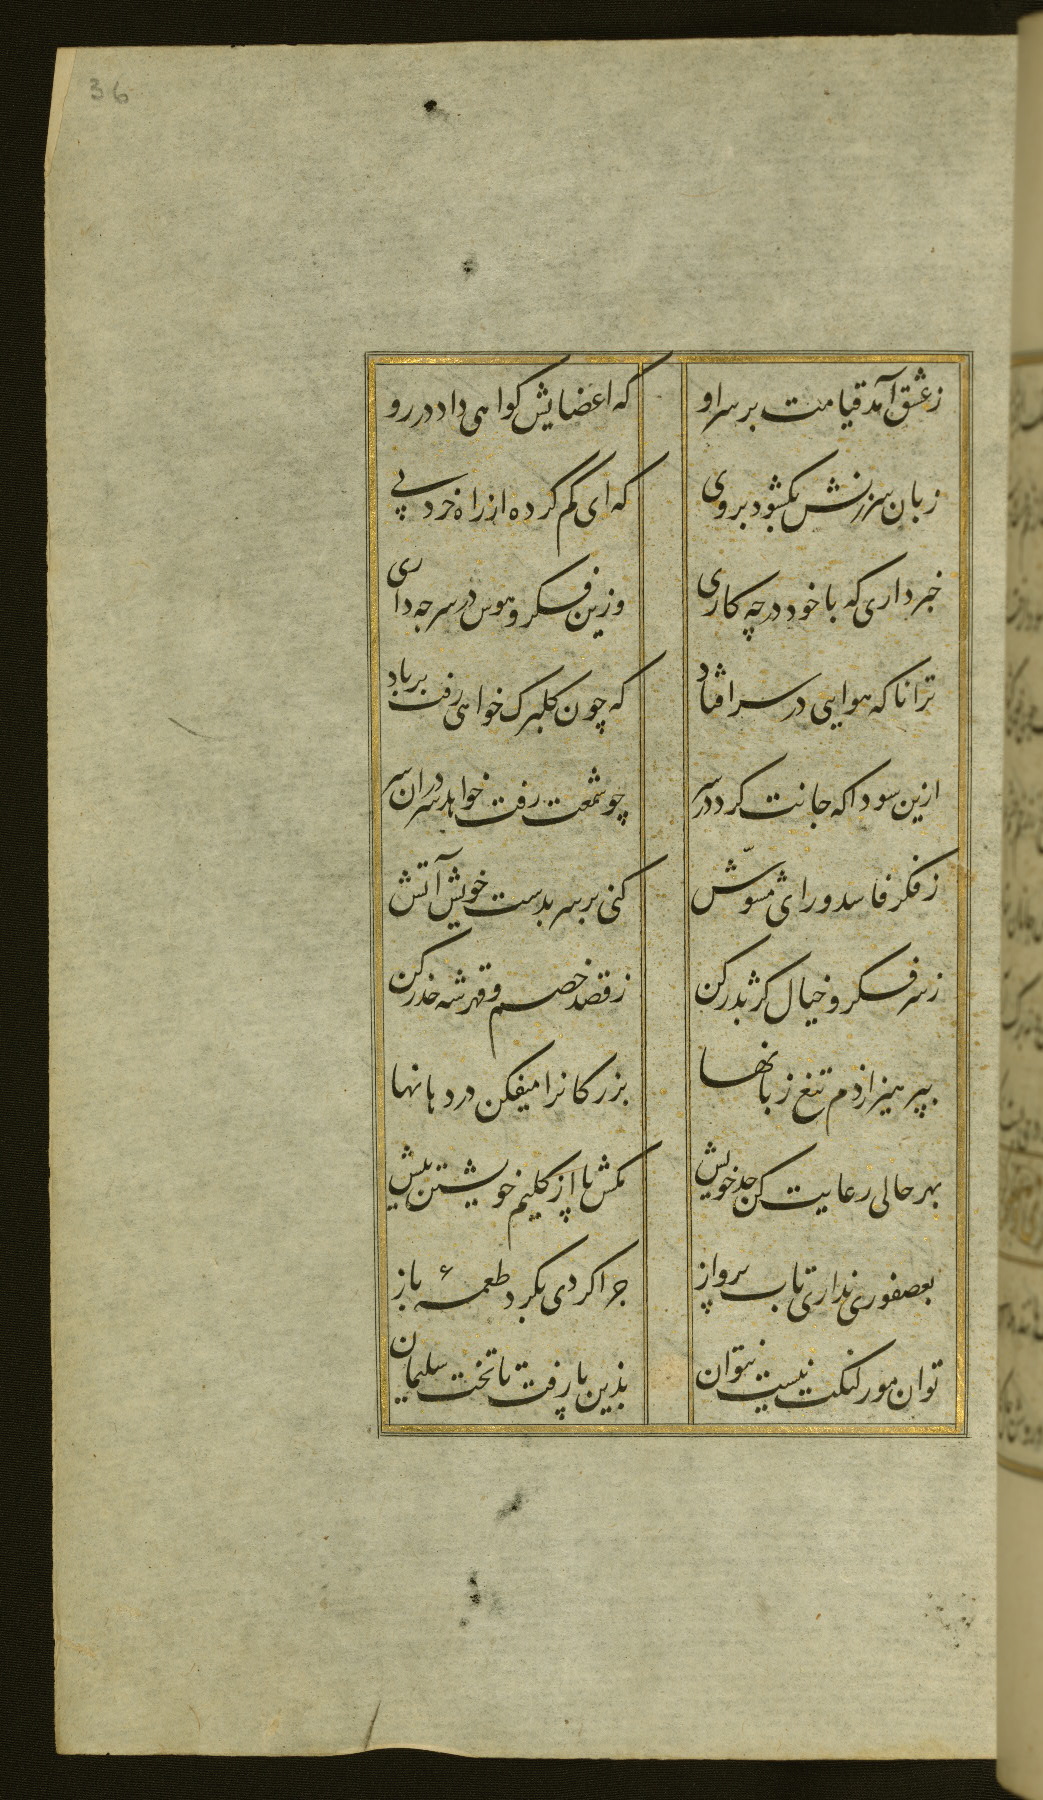 36
ز عشق آمد قیامت بر سر او که اعضایش کواهی داد در رو
زبان سرزنش بکشود بروی که ای کم کرده از راه خرد پی
خبر داری که با خود در چه کاری وزین فکر و هوس در سر چه داری
ترا تا که هوایی در سر افتاد که چون کلبرک خواهی رفت بر باد
ازین سودا که جانت کرد در سر چو شمعت رفت خواهد سر در ان سر
ز فکر فاسد و رای مشوّش کنی بر سر بدست خویش آتش
ز سر فکر و خیال کژ بدر کن ز قصد خصم و قهر شه حذر کن
بپرهیز از دم تیغ زبانها بزرکانرا میفکن در دهانها
بهر حالی رعایت کن حد خویش مکش پا از کلیم خویشتن بیش
بعصفوری نداری تاب پرواز چرا کردی بکرد طعمهٔ باز
توان مور لنکت نیست نتوان بذین پا رفت تا تخت سلیمان